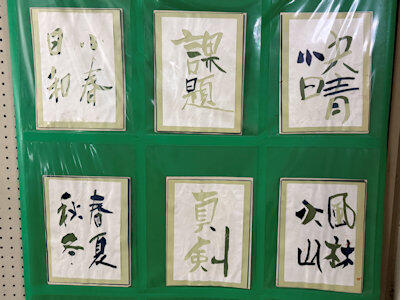 小春
日和
課題
快晴
春夏
秋冬
真剣
風林
火山